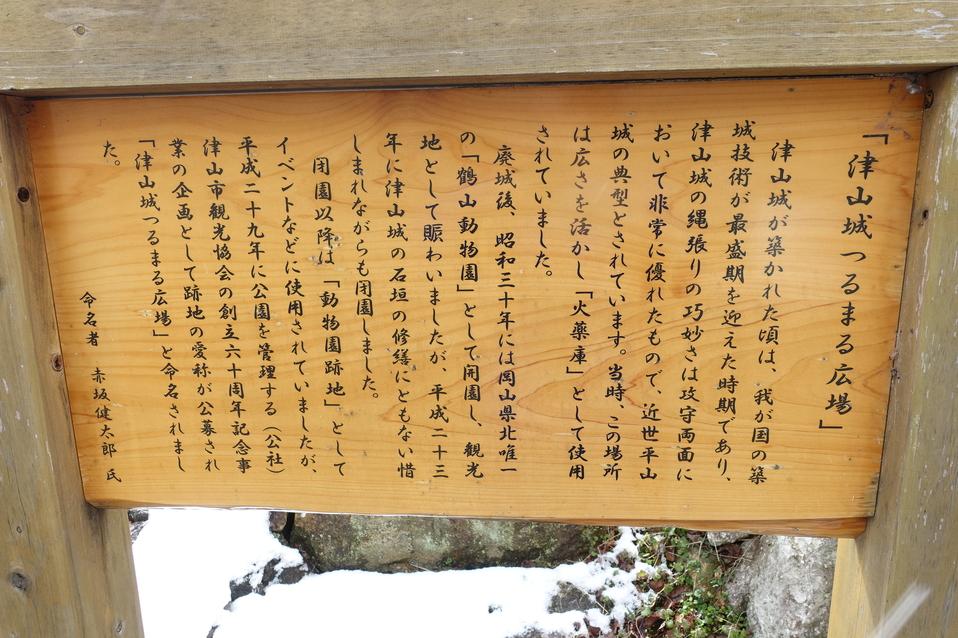 「津山城つるまる広場」
津山城が築かれた頃は、我が国の築
城技術が最盛期を迎えた時期であり、
津山城の縄張りの巧妙さは攻守両面に
おいて非常に優れたもので、近世平山
城の典型とされています。当時、この場所
は広さを活かし「火薬庫」として使用
されていました。
廃城後、昭和三十年には岡山県北唯一
の「鶴山動物園」として開園し、観光
地として賑わいましたが、平成二十三
年に津山城の石垣の修繕にともない惜
しまれながらも閉園しました。
閉園以降は「動物園跡地」として
イベントなどに使用されていましたが、
平成二十九年に公園を管理する（公社）
津山市観光協会の創立六十周年記念事
業の企画として跡地の愛称が公募され
「津山城つるまる広場」と命名されまし
た。
命名者 赤坂健太郎 氏